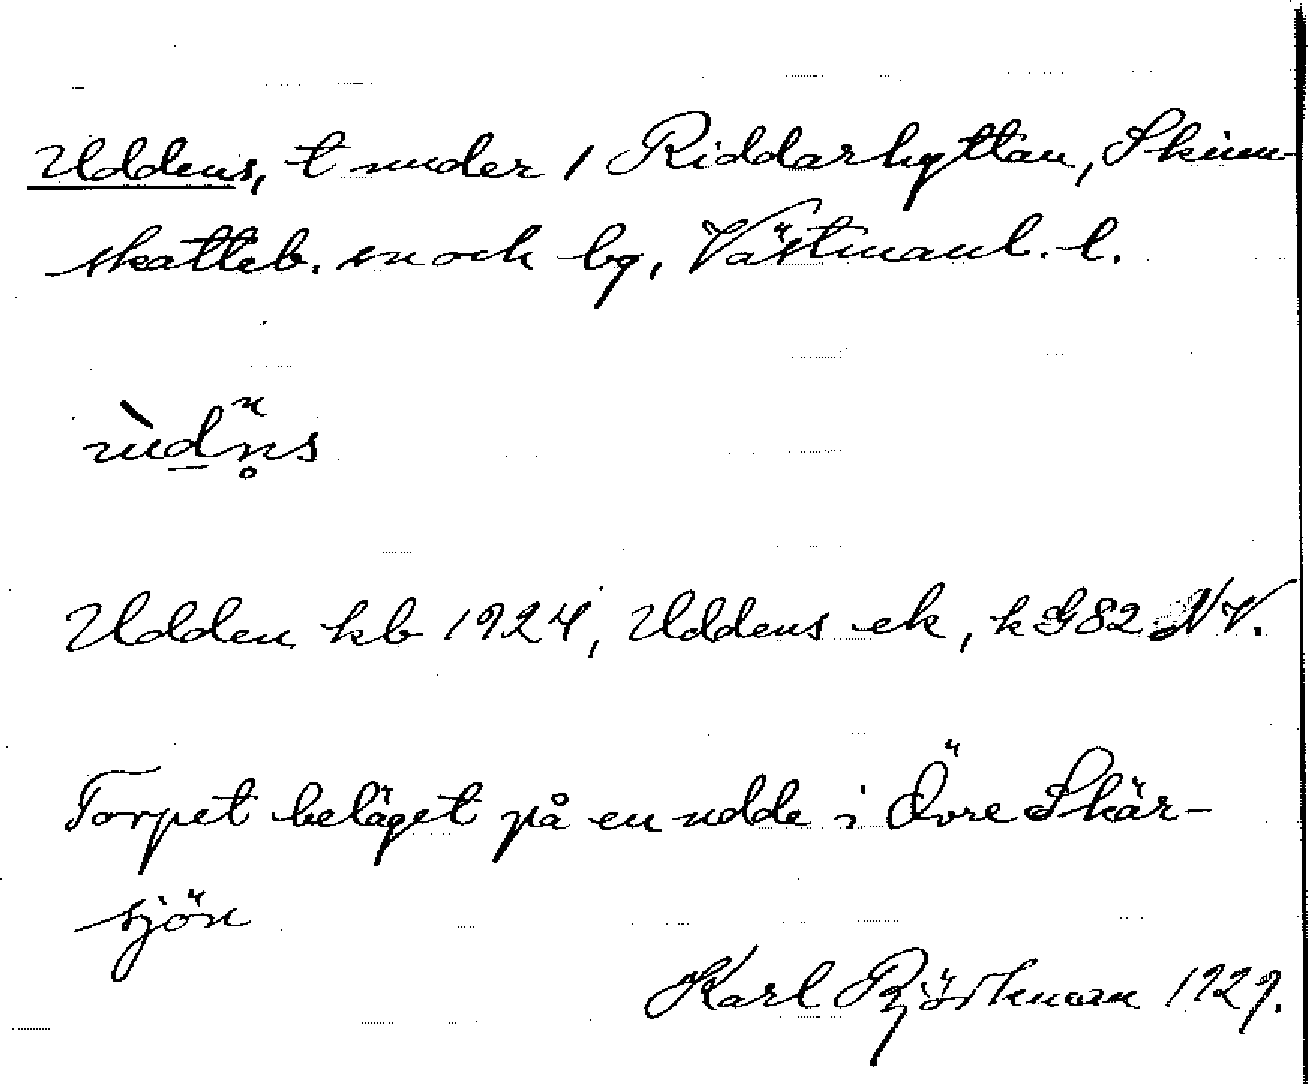 Uddens, t under 1 Riddarhyttan, Skinn-
skatteb. sn och bg, Västmanl. l.
ùdn̥s
Udden kb 1924, Uddens ek, k G82 NV.
Torpet beläget på en udde i Övre Skär-
sjön
Karl Björkman 1929.